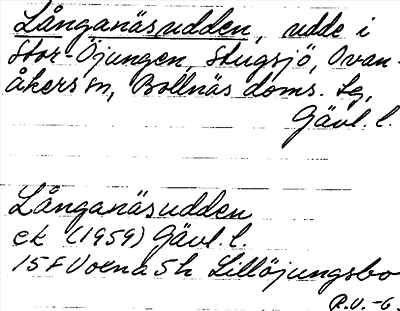 Långanäsudden, udde i
Stor-Öjungen, Stugsjö, Ovan-
åkers sn, Bollnäs doms. tg,
Gävl. l.
Långanäsudden
ek (1959) Gävl. l.
15F Voxna 5h Lillöjungsbo
R.U. -6